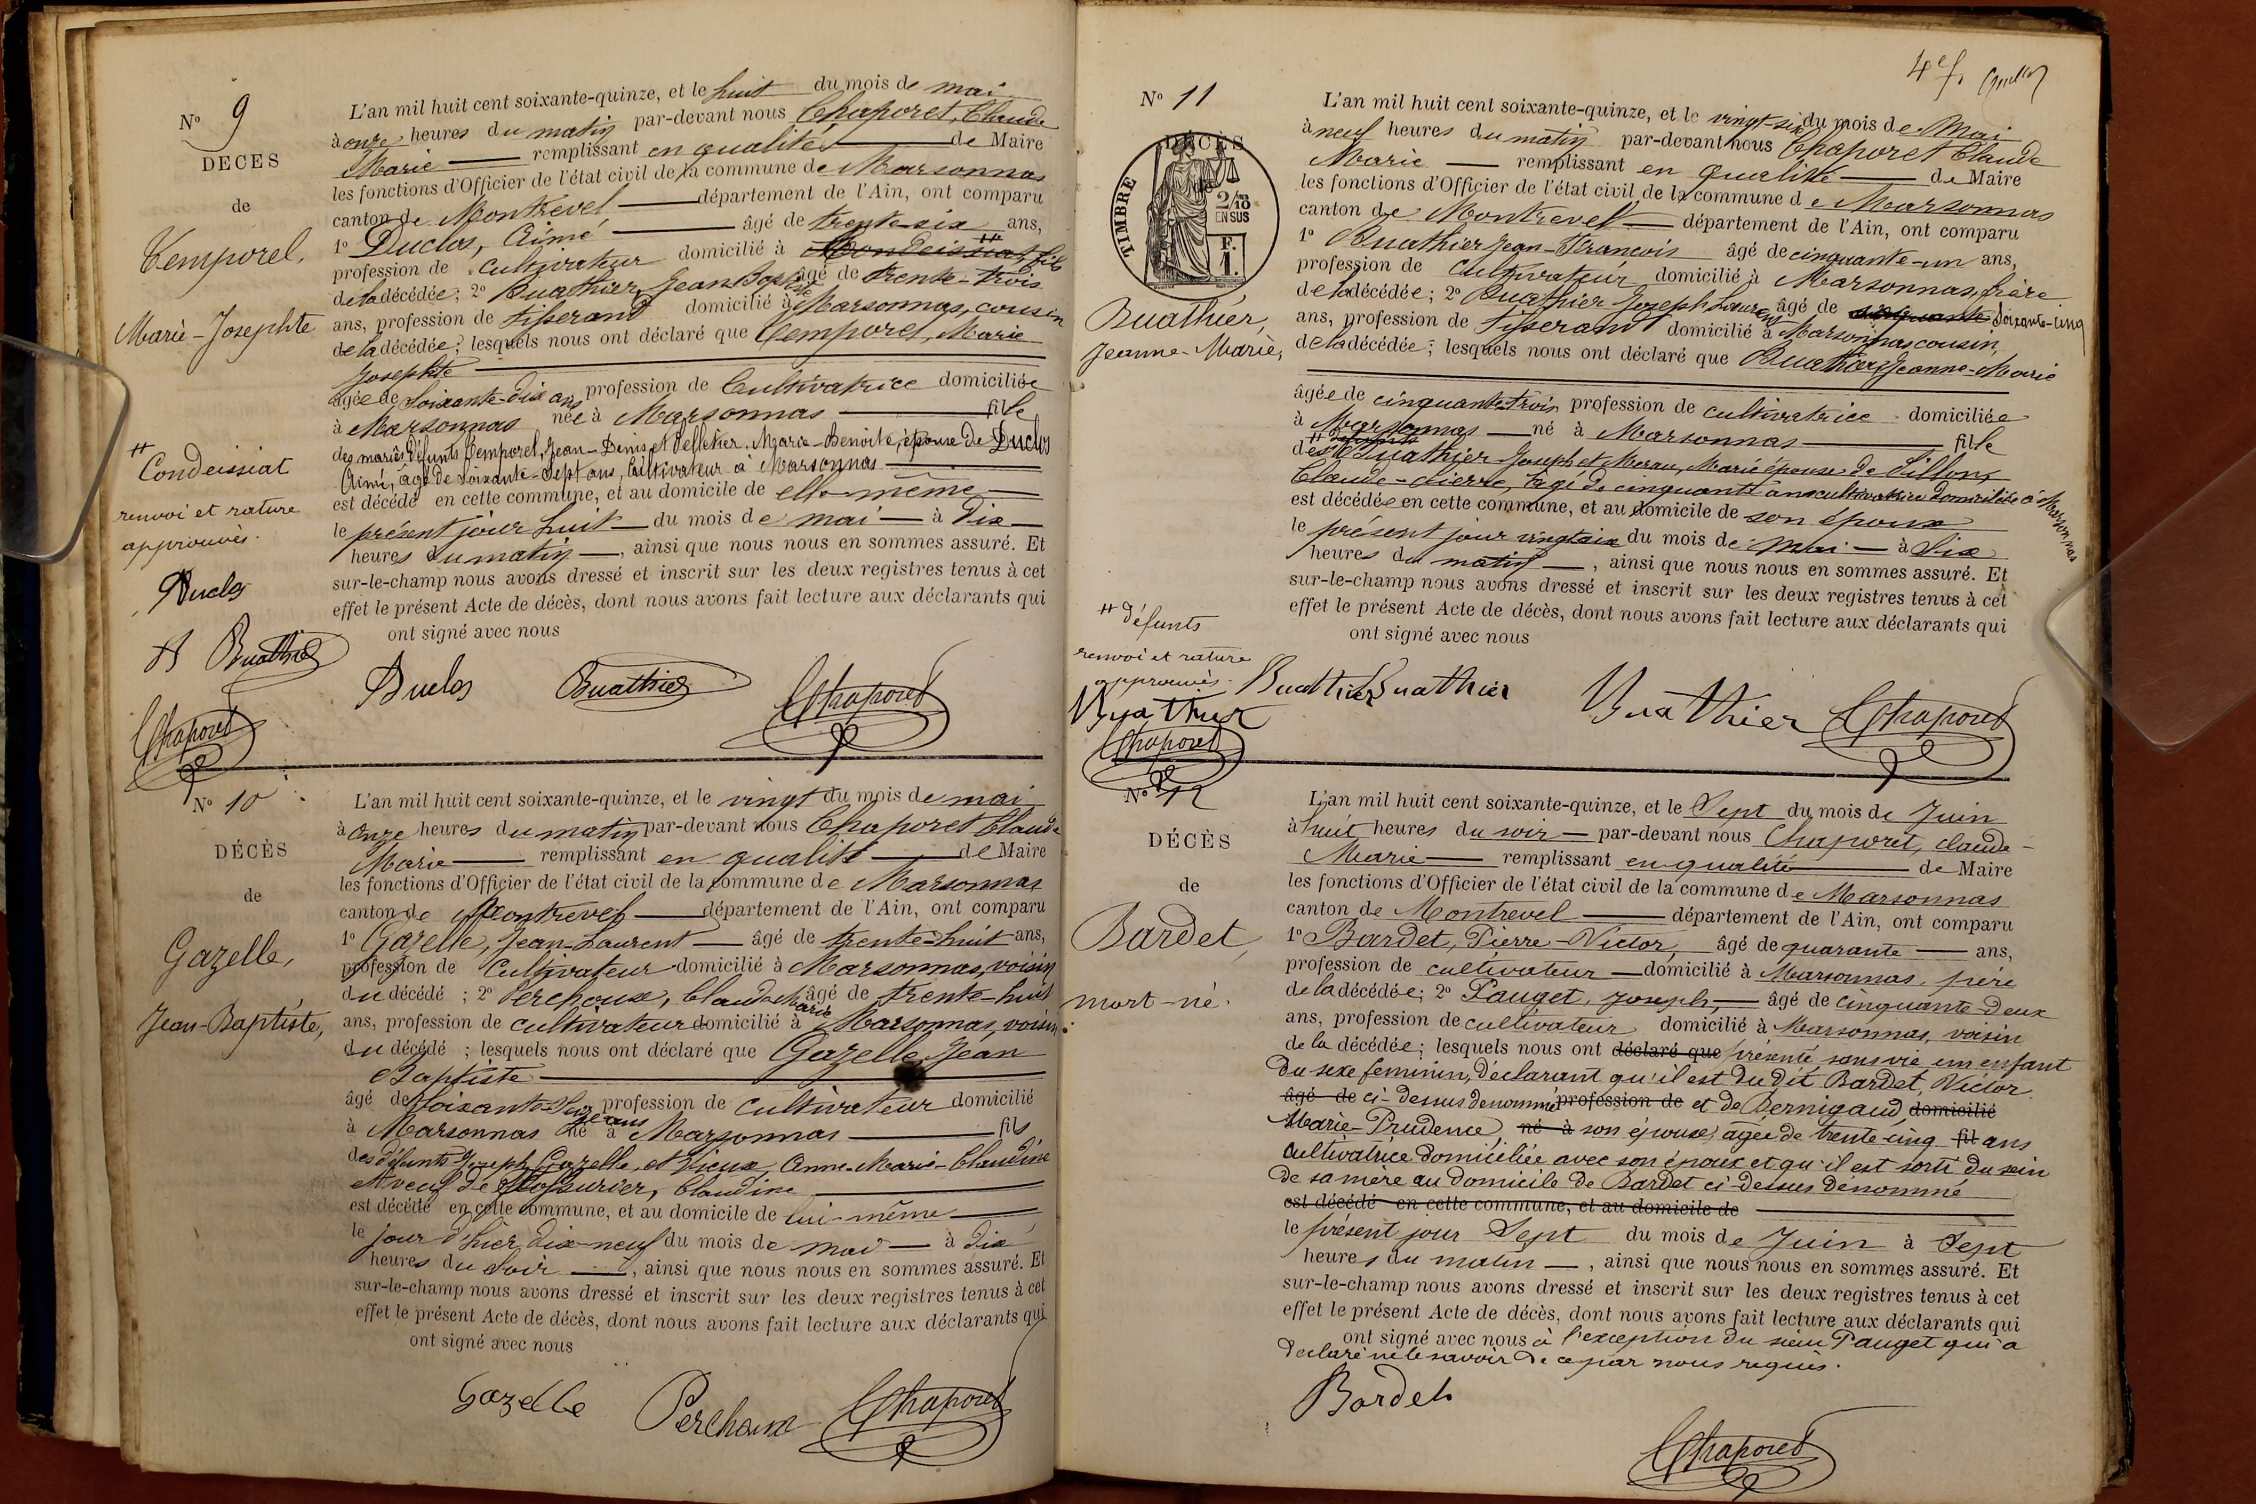 N° 9
DÉCÈS
de
Temporel,
Marie-Josephte
L'an mil huit cent soixante-quinze, et le huit du mois de mai
à onze heures du matin par-devant nous Chaporet, Claude
Marie remplissant en qualité de Maire
les fonctions d'Officier de l'état civil de la commune de Marsonnas
canton de Montrevel département de l'Ain, ont comparu
1° Duclos, Aimé âgé de trente-six ans,
profession de cultivateur domicilié à Condeissiat, fils
de la décédée; 2° Buathier, Jean Baptiste âgé de trente-trois
ans, profession de tisserand domicilié à Marsonnas, cousin
de la décédée; lesquels nous ont déclaré que Temporel, Marie
Josephte
âgée de soixante-dix ans profession de Cultivatrice domiciliée
à Marsonnas née à Marsonnas fille
des mariés défunts Temporel, Jean-Denis et Pelletier, Marie-Benoite, épouse de Duclos
Aimé, âgé de soixante-sept ans, Cultivateur à Marsonnas
est décédé en cette commune, et au domicile de elle-même
le présent jour huit du mois de mai à dix
heures du matin, ainsi que nous nous en sommes assuré. Et
sur-le-champ nous avons dressé et inscrit sur les deux registres tenus à cet
effet le présent Acte de décès, dont nous avons fait lecture aux déclarants qui
ont signé avec nous
Condeissiat
renvoi et rature
approuvés.
Duclos
Buathier
Chaporet
Duclos Buathier Chaporet
N° 10
DÉCÈS
de
Gazelle,
Jean-Baptiste,
L'an mil huit cent soixante-quinze, et le vingt du mois de mai
à onze heures du matin par-devant nous Chaporet Claude
Marie remplissant en qualité de Maire
les fonctions d'Officier de l'état civil de la commune de Marsonnas
canton de Montrevel département de l'Ain, ont comparu
1° Gazelle, Jean-Laurent âgé de trente-huit ans,
profession de Cultivateur domicilié à Marsonnas, voisin
du décédé ; 2° Perchoux, Claude Marie âgé de trente-huit
ans, profession de cultivateur domicilié à Marsonnas, voisin
du décédé ; lesquels nous ont déclaré que Gazelle, Jean
Baptiste
âgé de soixante-seize ans profession de cultivateur domicilié
à Marsonnas né à Marsonnas fils
des défunts Joseph Gazelle, et Vieux, Anne-Marie-Claudine
et veuf de Claudine
est décédé en cette commune, et au domicile de lui-même
le jour d'hier dix-neuf du mois de mai à dix
heures du soir, ainsi que nous nous en sommes assuré. Et
sur-le-champ nous avons dressé et inscrit sur les deux registres tenus à cet
effet le présent Acte de décès, dont nous avons fait lecture aux déclarants qui
ont signé avec nous
Gazelle Perchoux Chaporet
4e f.
N° 11
DÉCÈS
TIMBRE
2/10
EN SUS
F.
1.
Buathier,
Jeanne-Marie,
L'an mil huit cent soixante-quinze, et le vingt-six du mois de Mai
à neuf heures du matin par-devant nous Chaporet Claude
Marie remplissant en qualité de Maire
les fonctions d'Officier de l'état civil de la commune de Marsonnas
canton de Montrevel département de l'Ain, ont comparu
1° Buathier Jean-François âgé de cinquante-un ans,
profession de cultivateur domicilié à Marsonnas, frère
de la décédée; 2° Buathier Joseph Laurent âgé de cinquante soixante-cinq
ans, profession de tisserant domicilié à Marsonnas cousin,
de la décédée; lesquels nous ont déclaré que Buathier, Jeanne-Marie
âgée de cinquante trois profession de cultivatrice domiciliée
à Marsonnas né à Marsonnas fille
des Buathier Joseph et Marie épouse de Villon,
Claude-Pierre, âgé de cinquante ans cultivateur domicilié à Marsonnas
est décédée en cette commune, et au domicile de son époux
le présent jour vingt six du mois de Mai à Six
heures du matin, ainsi que nous nous en sommes assuré. Et
sur-le-champ nous avons dressé et inscrit sur les deux registres tenus à cet
effet le présent Acte de décès, dont nous avons fait lecture aux déclarants qui
ont signé avec nous
défunts
renvoi et rature
approuvés.
Buathier Buathier Buathier Chaporet
Buathier
Chaporet
N° 12
DÉCÈS
de
Bardet,
mort-né.
L'an mil huit cent soixante-quinze, et le Sept du mois de Juin
à huit heures du soir par-devant nous Chaporet, claude-
Marie remplissant en qualité de Maire
les fonctions d'Officier de l'état civil de la commune de Marsonnas
canton de Montrevel département de l'Ain, ont comparu
1° Bardet, Pierre-Victor, âgé de quarante ans,
profession de cultivateur domicilié à Marsonnas, père
de la décédée; 2° Pauget, Joseph, âgé de cinquante-deux
ans, profession de cultivateur domicilié à Marsonnas, voisin
de la décédée; lesquels nous ont déclaré que présenté sans vie un enfant
du sexe féminin, déclarant qu'il est du dit Bardet, Victor
âgé de ci-dessus dénommé profession de et de Bernigaud, domicilié
Marie-Prudence né à son épouse, âgée de trente-cinq fil ans
cultivatrice domiciliée avec son époux et qu'il est sorti du sein
de sa mère au domicile de Bardet ci-dessus dénommé
est décédé en cette commune, et au domicile de
le présent jour Sept du mois de Juin à Sept
heures du matin, ainsi que nous nous en sommes assuré. Et
sur-le-champ nous avons dressé et inscrit sur les deux registres tenus à cet
effet le présent Acte de décès, dont nous avons fait lecture aux déclarants qui
ont signé avec nous à l'exception du sieur Pauget qui a
déclaré ne le savoir de ce par nous requis.
Bardet
Chaporet